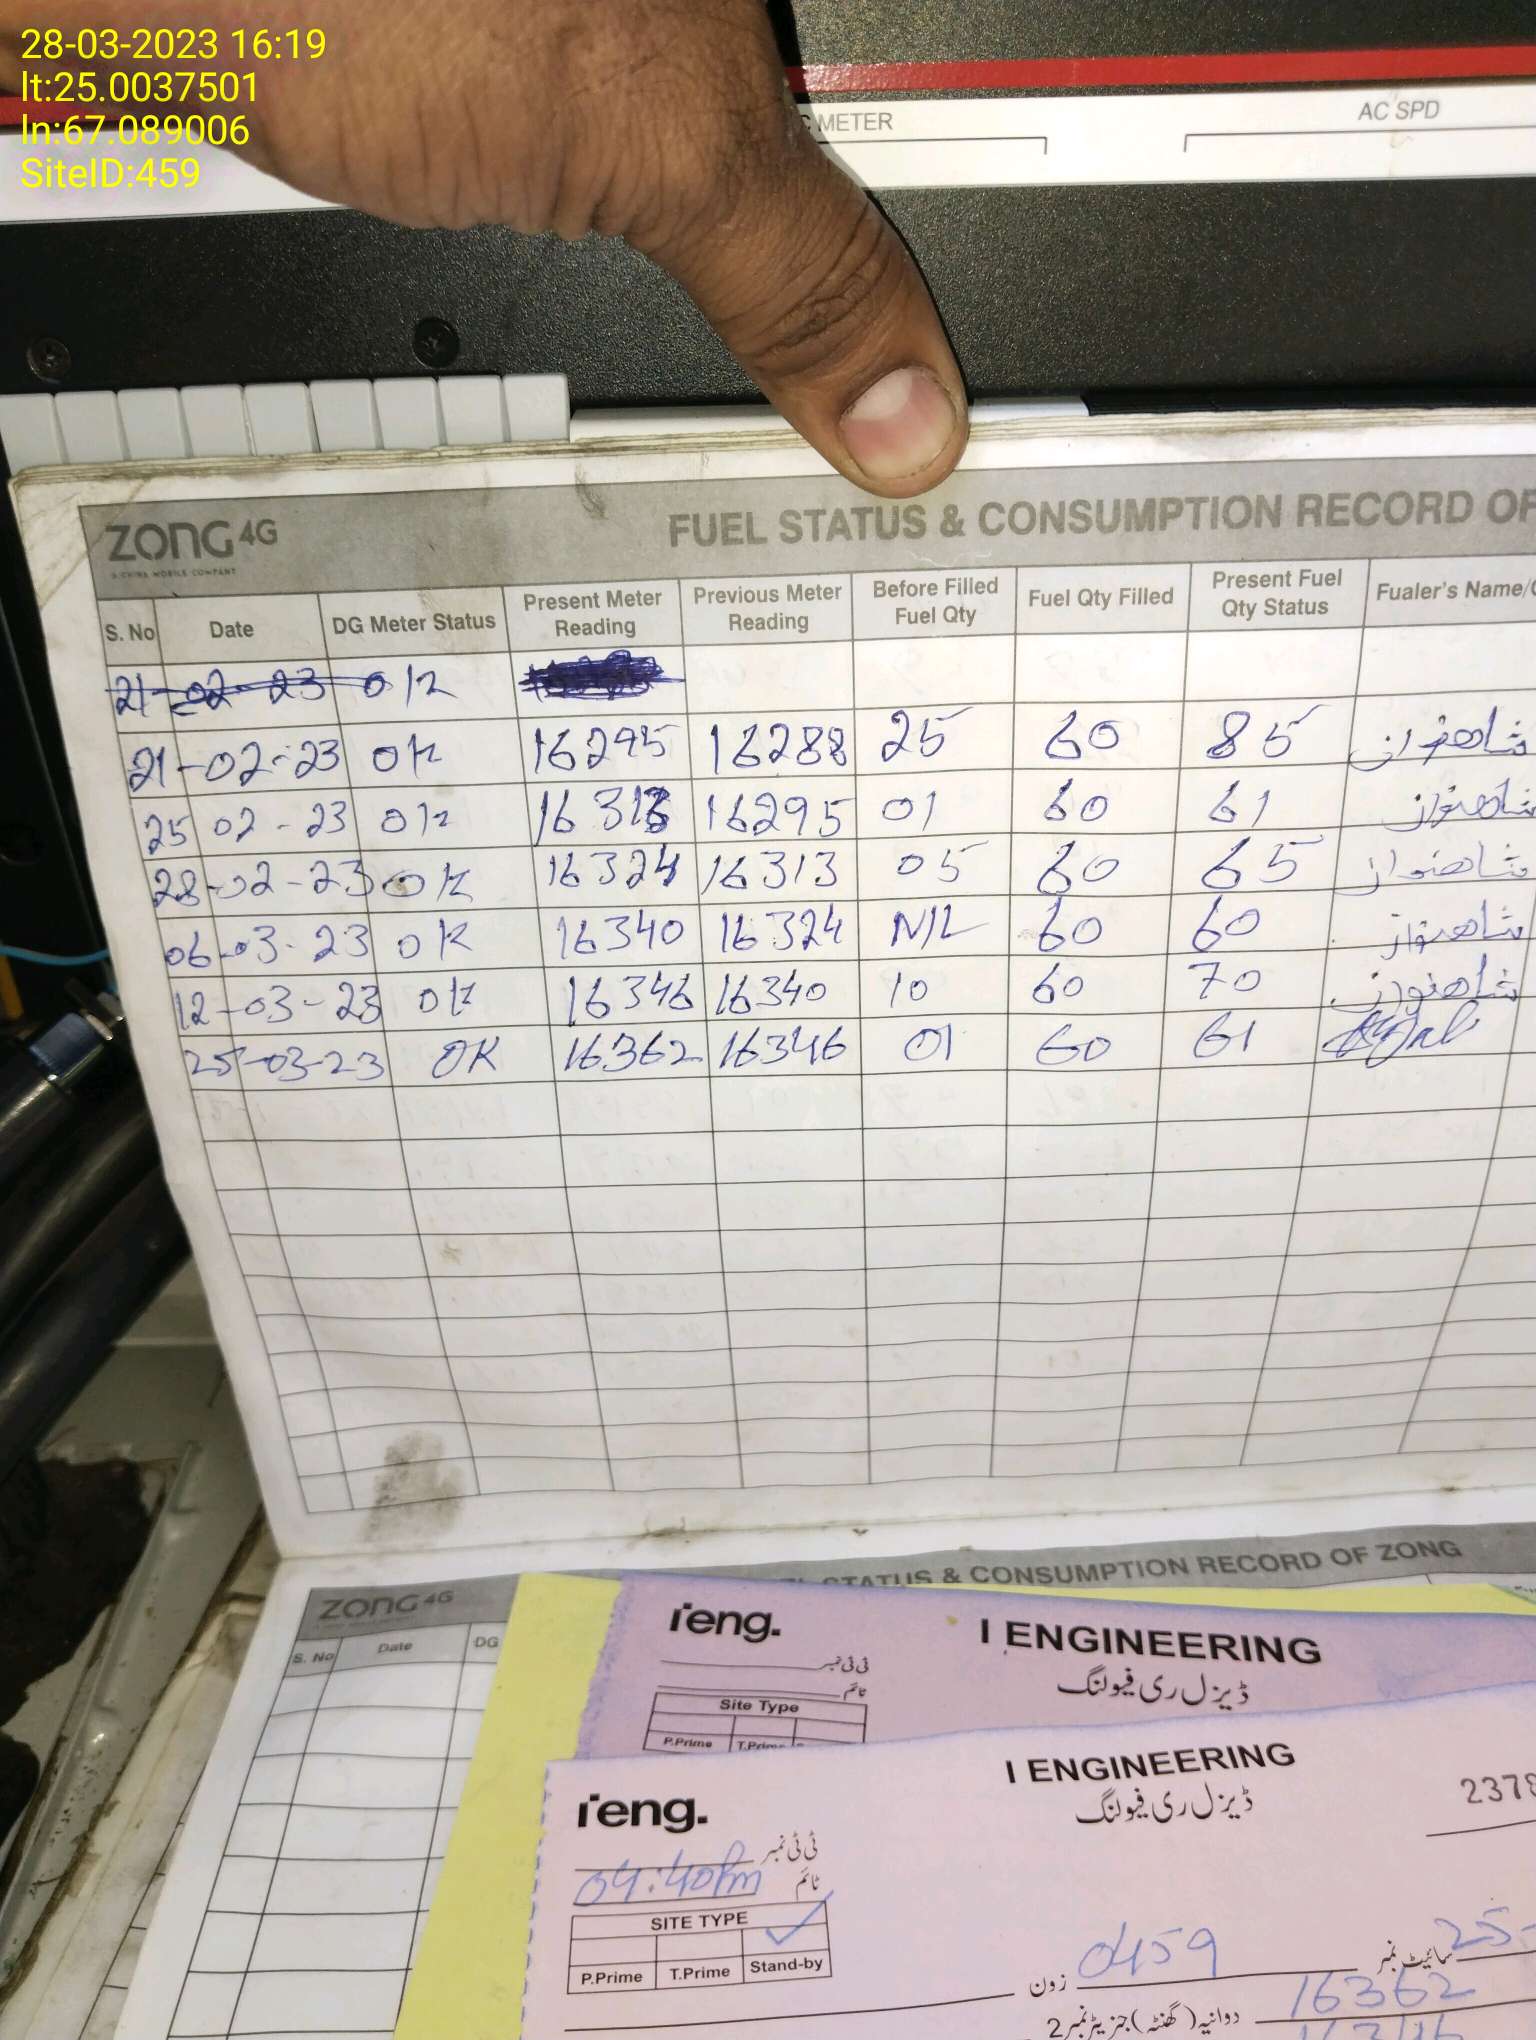 28-03-2023 16:19
lt:25.0037501
ln:67.089006
SiteID:459
METER AC SPD
ZONG 4G
A CHINA MOBILE COMPANY
FUEL STATUS & CONSUMPTION RECORD OF
S. No Date DG Meter Status Present Meter Reading Previous Meter Reading Before Filled Fuel Qty Fuel Qty Filled Present Fuel Qty Status Fualer's Name/
21-02-23 OK
21-02-23 OK 16295 16288 25 60 85 شاهنواز
25 02-23 OK 16313 16295 01 60 61 شاهنواز
28-02-23 OK 16324 16313 05 60 65 شاهنواز
06-03-23 OK 16340 16324 NIL 60 60 شاهنواز
12-03-23 OK 16346 16340 10 60 70 شاهنواز
25-03-23 OK 16362 16346 01 60 61
ZONG 4G
STATUS & CONSUMPTION RECORD OF ZONG
S. No Date DG
i'eng.
I ENGINEERING
ڈیزل ری فیولنگ
ٹی ٹی نمبر
ٹائم
Site Type
P.Prime T.Prime
I ENGINEERING
i'eng.
ڈیزل ری فیولنگ
2378
ٹی ٹی نمبر
04:40Pm ٹائم
SITE TYPE
✓
P.Prime T.Prime Stand-by
زون 0459 سائیٹ نمبر 25-
دوانیہ (گھنٹہ) جنریٹر نمبر 2 16362
16346